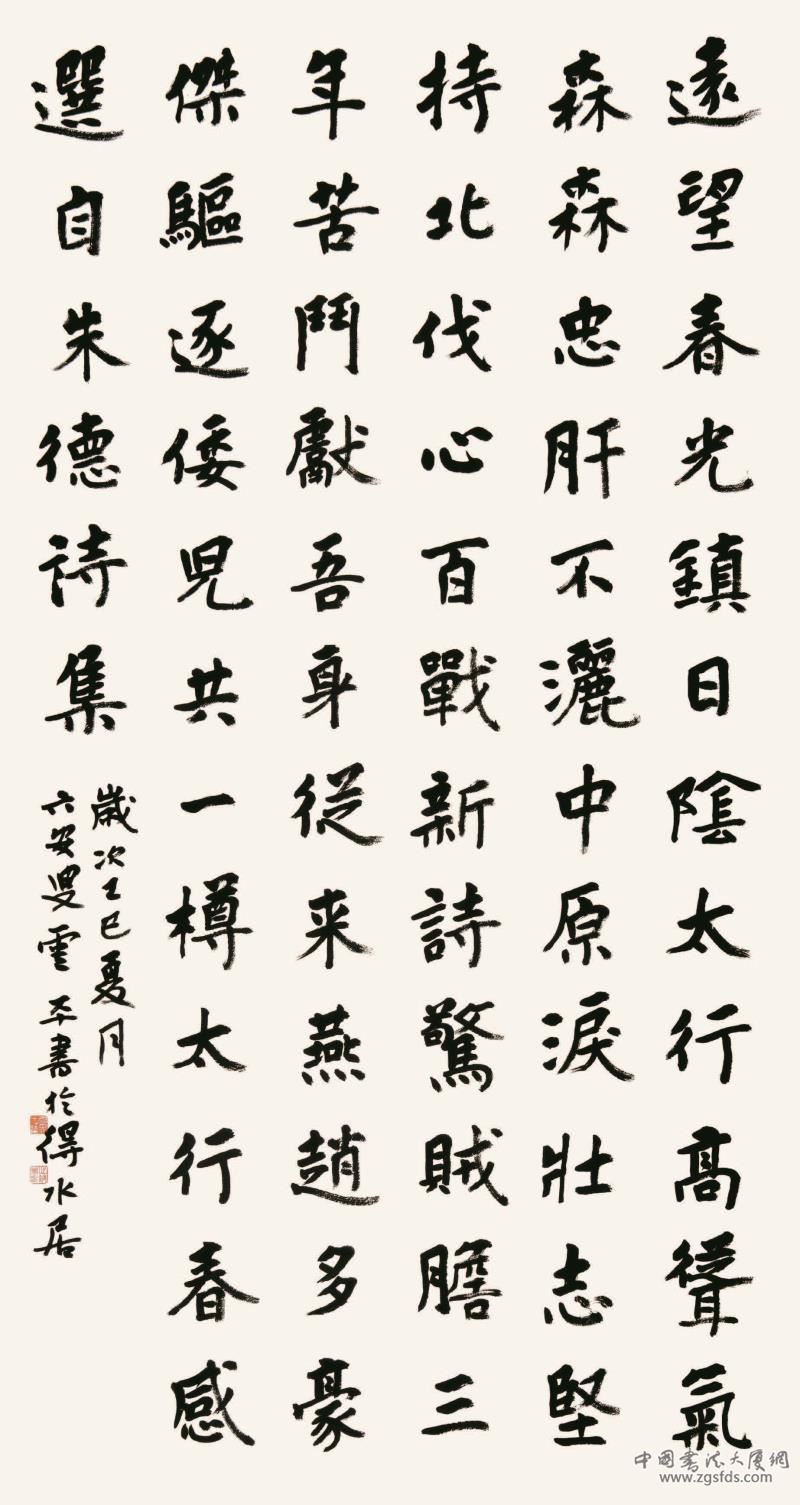 遠望春光鎮日陰太行髙聳氣
森森忠肝不灑中原淚壯志堅
持北伐心百戰新詩驚賊膽三
年苦鬥獻吾身從来燕趙多豪
傑驅逐倭兒共一樽太行春感
選自朱德詩集
歲次乙巳夏月
六安叟雲平書於得水居
中國書法大廈網
www.zgsfds.com